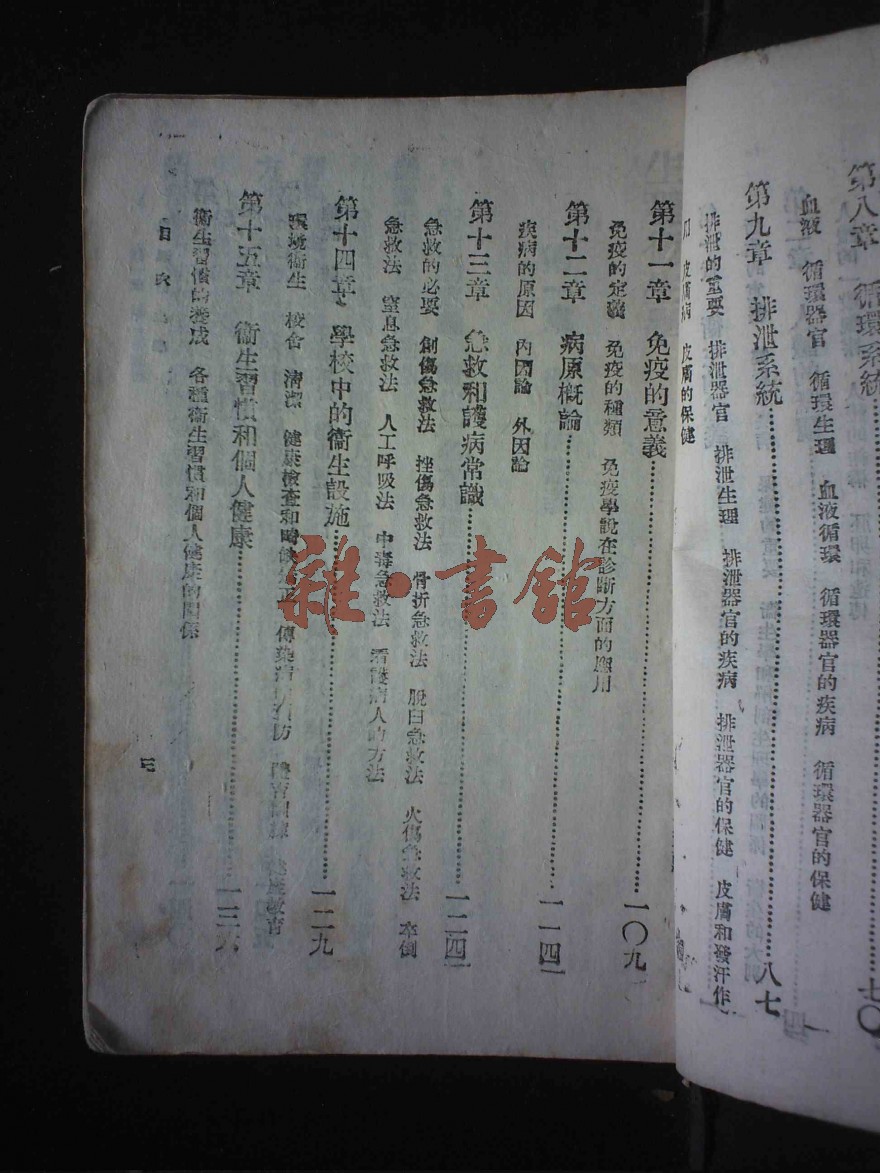 第八章　循環系統……七〇
血液　循環器官　循環生理　血液循環　循環器官的疾病　循環器官的保健
第九章　排泄系統……八七
排泄的重要　排泄器官　排泄生理　排泄器官的疾病　排泄器官的保健　皮膚和發汗作
皮膚病　皮膚的保健
第十一章　免疫的意義……一〇九
免疫的定義　免疫的種類　免疫學說在診斷方面的應用
第十二章　病原概論……一一四
疾病的原因　內因論　外因論
第十三章　急救和護病常識……一二四
急救的必要　創傷急救法　挫傷急救法　骨折急救法　脫臼急救法　火傷急救法　卒倒
急救法　窒息急救法　人工呼吸法　中毒急救法　看護病人的方法
第十四章　學校中的衞生設施……一二九
環境衞生　校舍　清潔　健康檢查和　健康教育
第十五章　衞生習慣和個人健康……一三六
衞生習慣的養成　各種衞生習慣和個人健康的關係
雜·書館